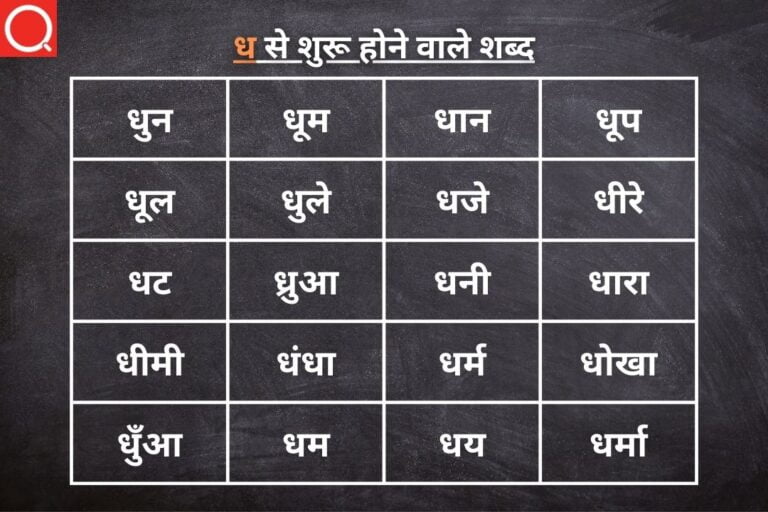 ध से शुरू होने वाले शब्द
धुन धूम धान धूप
धूल धुले धजे धीरे
धट ध्रुआ धनी धारा
धीमी धंधा धर्म धोखा
धुँआ धम धय धर्मा